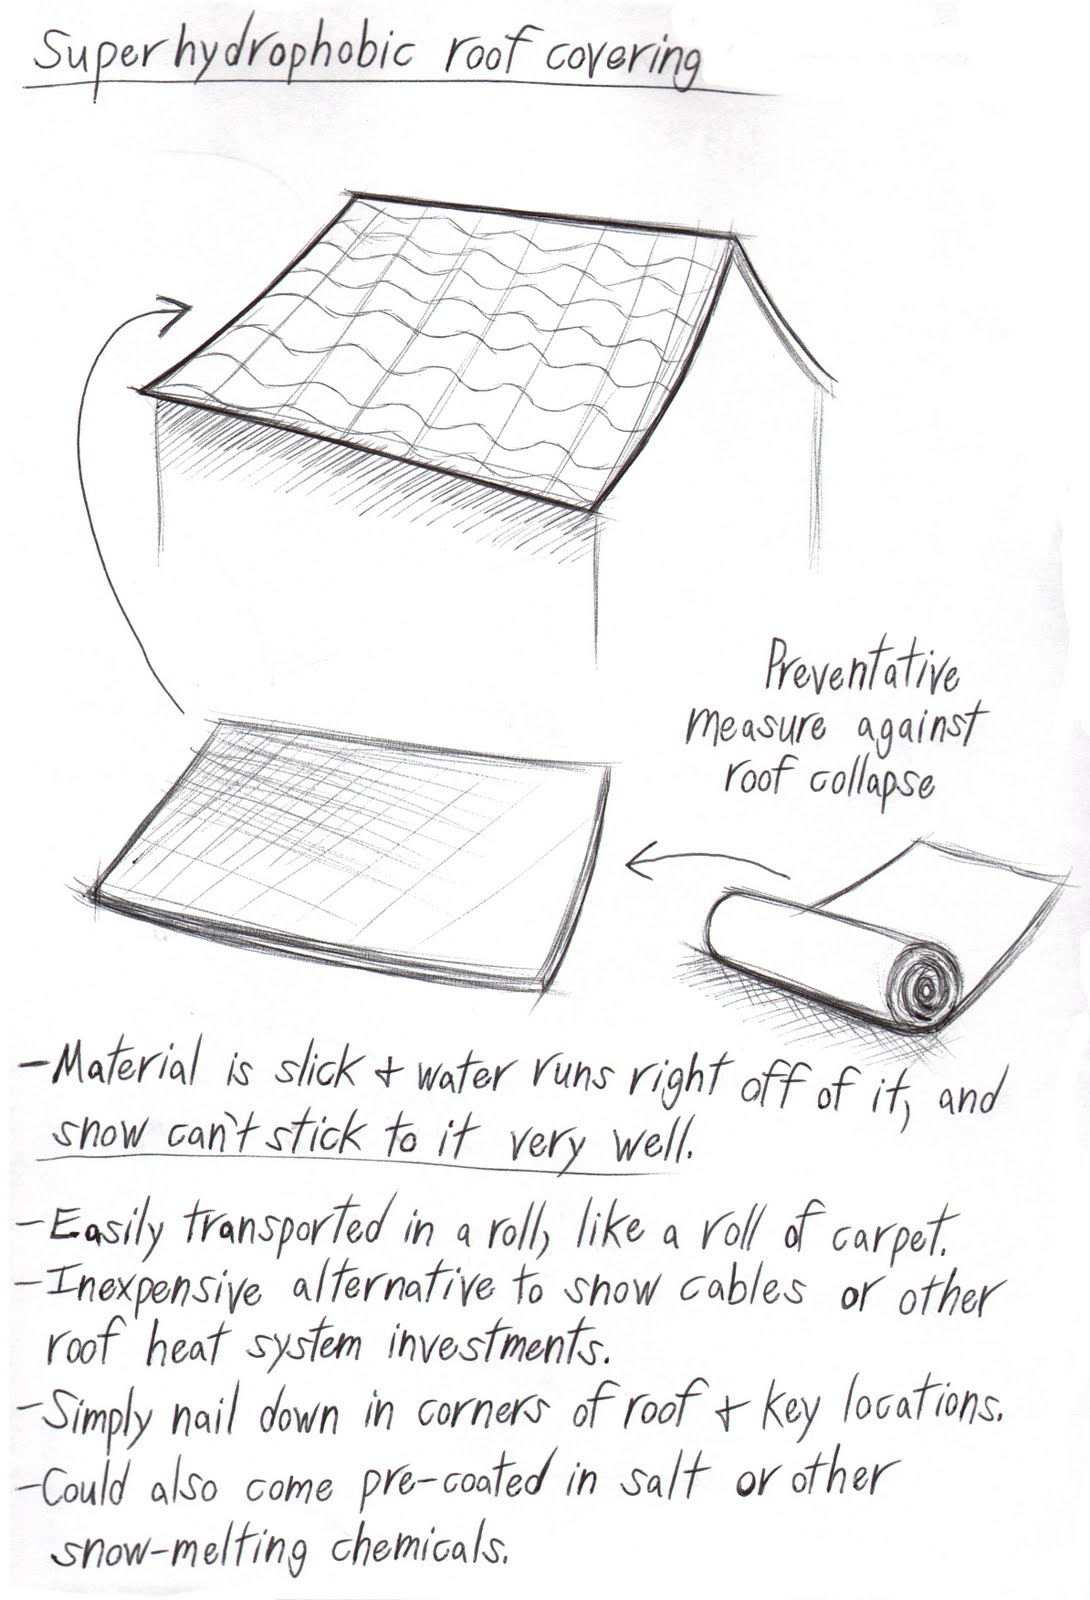 Superhydrophobic roof covering
Preventative
measure against
roof collapse
-Material is slick + water runs right off of it, and
snow can't stick to it very well.
-Easily transported in a roll, like a roll of carpet.
-Inexpensive alternative to snow cables or other
roof heat system investments.
-Simply nail down in corners of roof + key locations.
-Could also come pre-coated in salt or other
snow-melting chemicals.